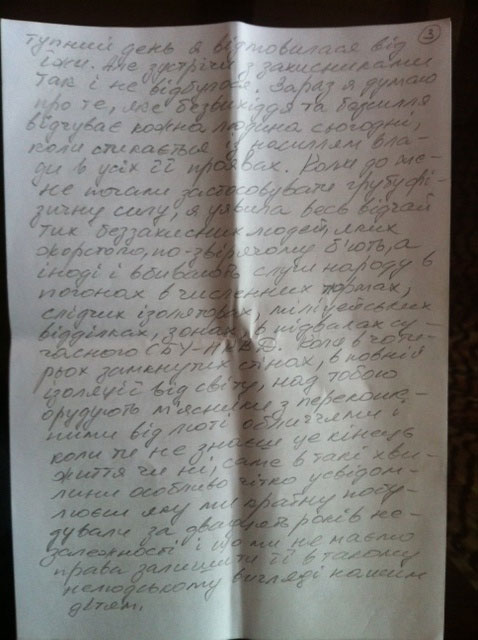 3
тупний день я відмовилася від
їжи. Але зустрічи з захисниками
так і не відбулося. Зараз я думаю
про те, яке безвихіддя та безсилля
відчуває кожна людина сьогодні,
коли стикається із насиллям вла-
ди в усіх її проявах. Коли до ме-
не почали застосовувати грубу фі-
зичну силу, я уявила весь відчай
тих беззахисних людей, яких
жорстоко, по-звірячому б'ють, а
іноді і вбивають слуги народу в
погонах в численних тюрмах,
слідчих ізоляторах, міліцейських
відділках, зонах, в підвалах су-
часного СБУ-НКВС. Коли в чоти-
рьох замкнутих стінах, в повній
ізоляції від світу, над тобою
орудують м'ясники з перекоше-
ними від люті обличчями і
коли ти не знаєш це кінець
життя чи ні, саме в такі хви-
лини особливо чітко усвідом-
люєш яку ми країну побу-
дували за двадцять років не-
залежності і що ми не маємо
права залишити її в такому
нелюдському вигляді нашим
дітям.